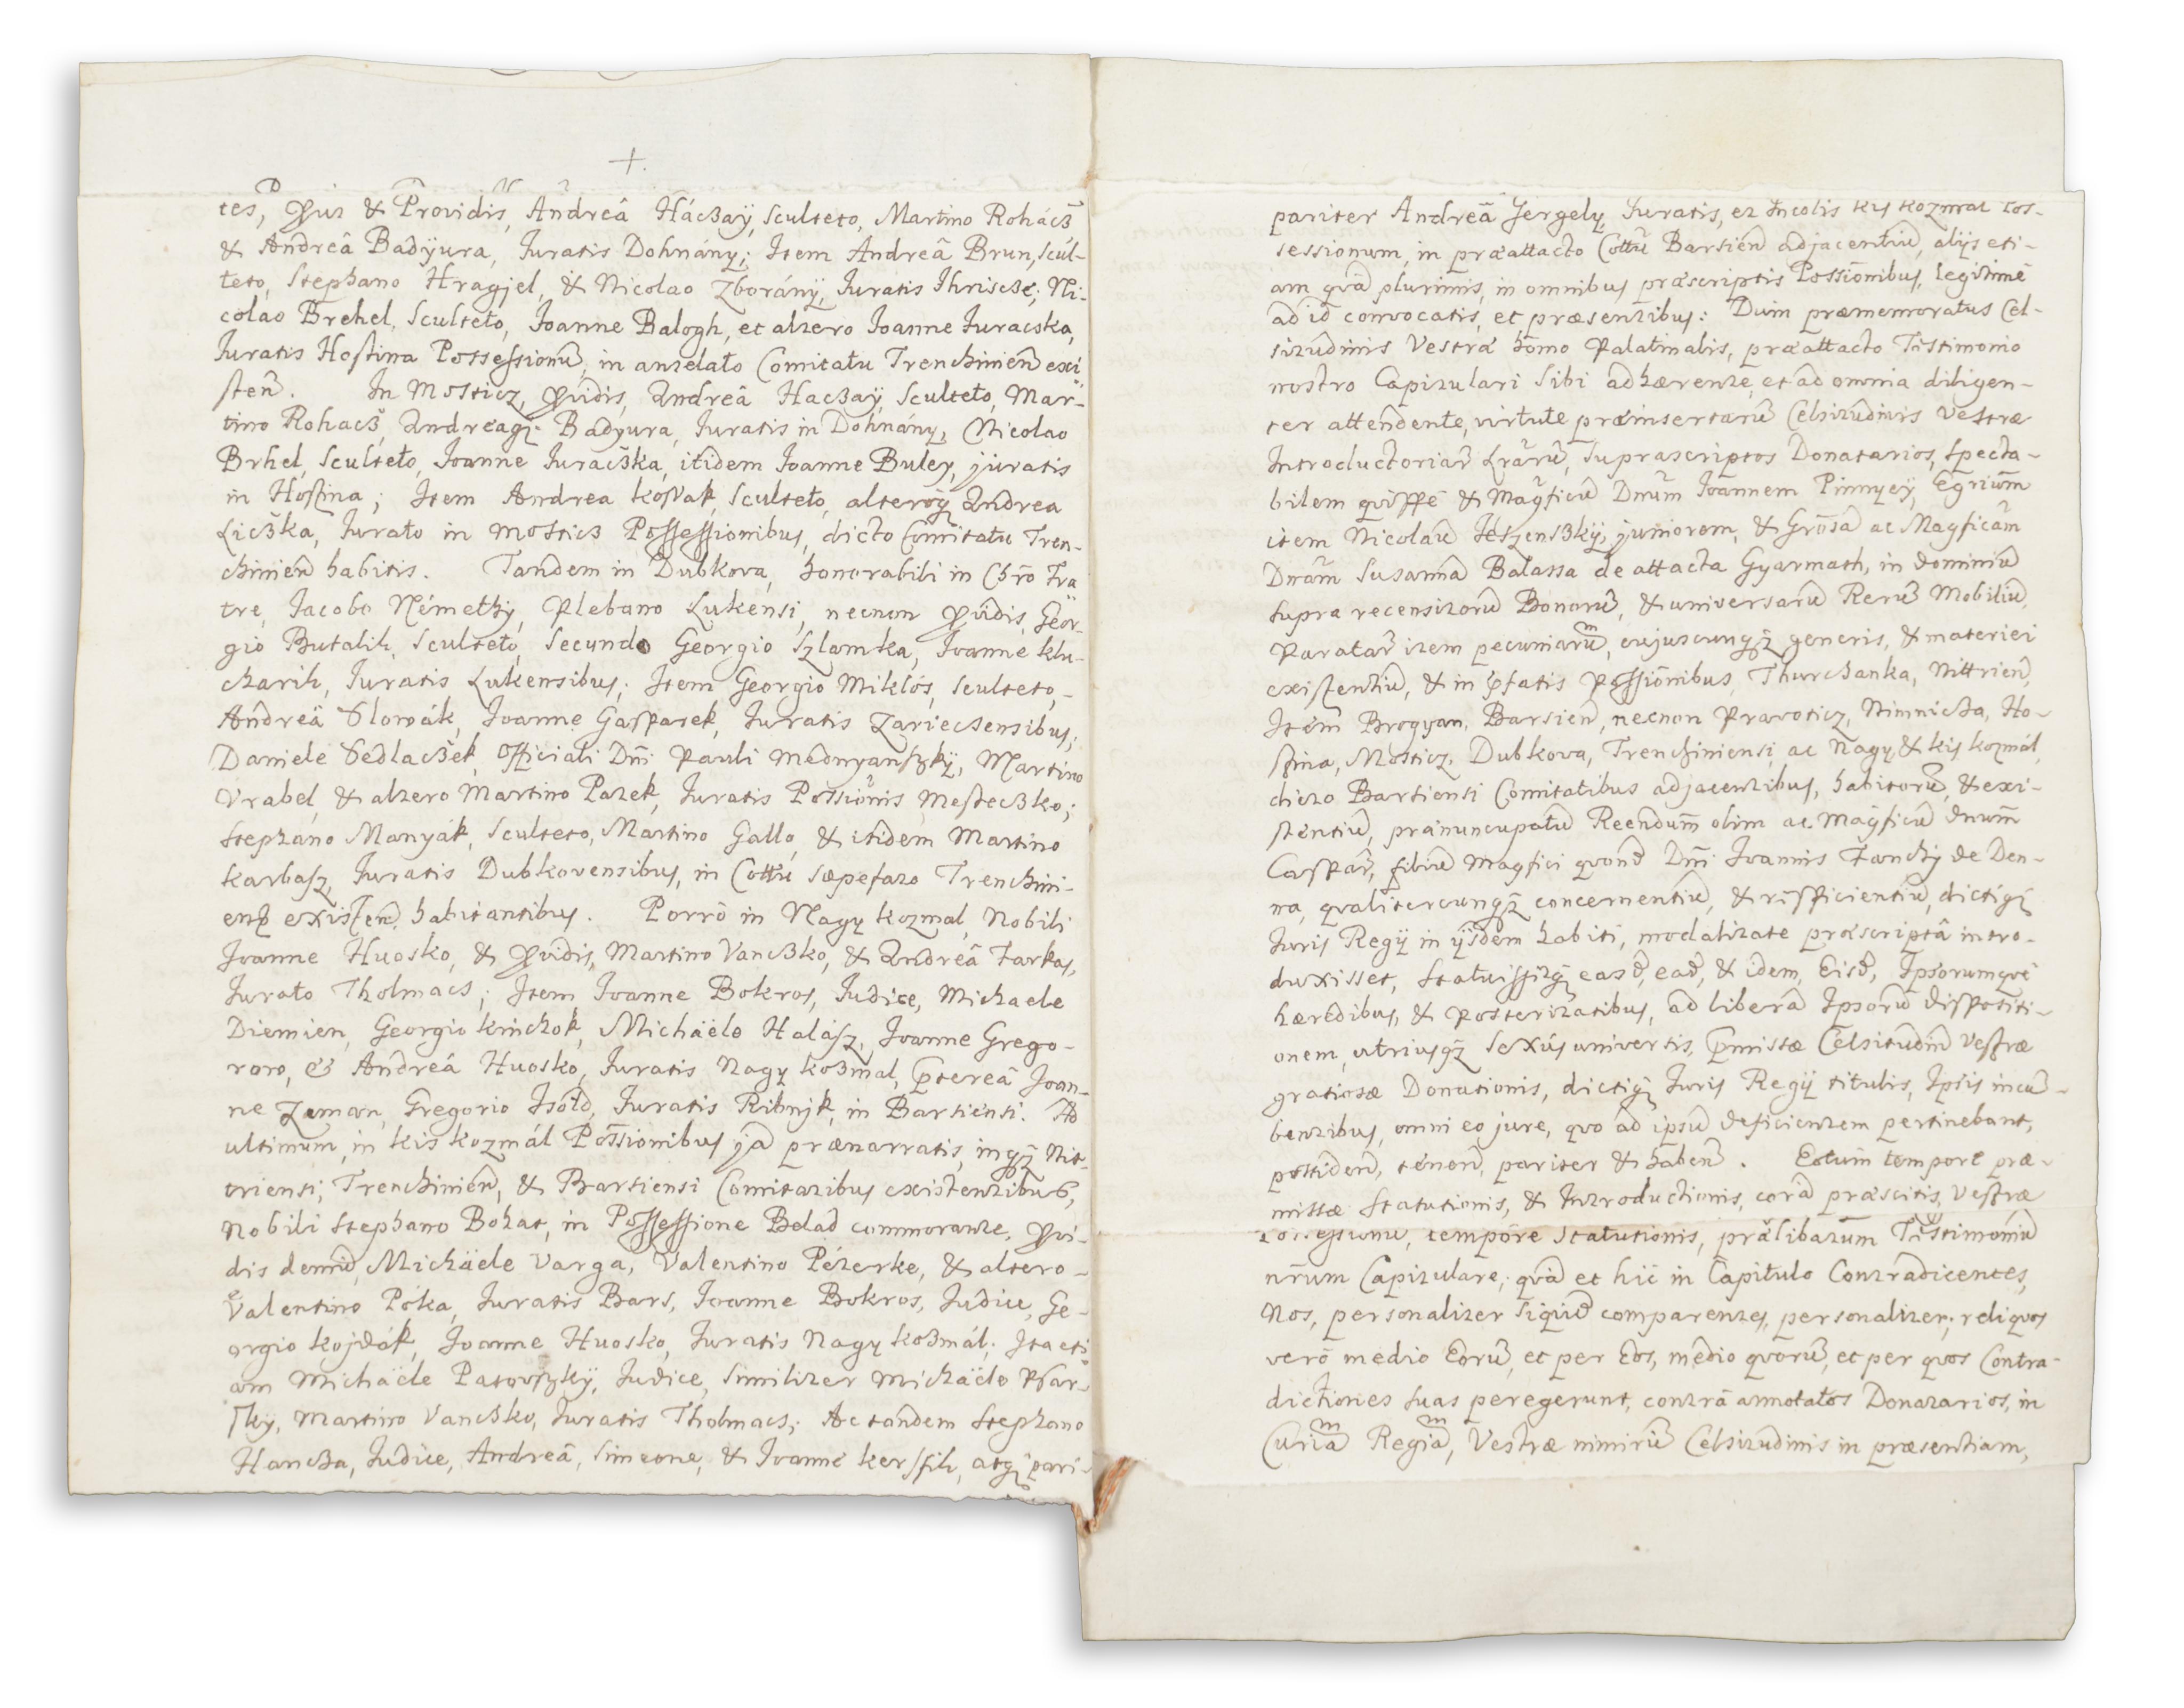 +.
tes, Pvis & Providis, Andreâ Háczaÿ, Sculteto, Martino Rohácz
& Andreâ Badÿura, Iuratis Dohnány; Item Andreâ Brun, Scul-
teto, Stephano Hragjel, & Nicolao Zboránÿ, Iuratis Ihriscze; Ni-
colao Brehel, Sculteto, Joanne Balogh, et altero Joanne Iuracska,
Iuratis Hostina Possessionũ, in antelato Comitatu Trenchinien̄ exi
sten̄. In Mosticz, Pvidis, Andreâ Haczaÿ, Sculteto, Mar-
tino Rohacz, Andreaq; Badyura, Iuratis in Dohnány, Nicolao
Brhel, Sculteto, Joanne Iuraczka, itidem Joanne Buley, juratis
in Hostina; Item Andrea Kossak, Sculteto, alteroq; Andrea
Liczka, Iurato in Mosticz Possessionibus, dicto Comitatu Tren-
chinien̄ habitis. Tandem in Dubkova, honorabili in Chrõ Fra
tre, Jacobo Némethy, Plebano Lukensi, necnon Pvidis, Geor-
gio Butalih, Sculteto, Secundo Georgio Szlamka, Joanne Klu-
charih, Iuratis Lukensibus; Item Georgio Miklós, Sculteto,
Andreä Slowák, Joanne Gasparek, Iuratis Zariecsensibus;
Daniele Sedlaczek, Officiali Dnĩ Pauli Mednyanszkÿ, Martino
Vrabel, & altero Martino Pazek, Iuratis Possiõnis Mesteczko;
Stephano Manyák, Sculteto, Martino Gallo, & itidem Martino
Karbasz, Iuratis Dubkovensibus, in Cottũ sæpefato Trenchini-
en̄ existen̄, habitantibus. Porrò in Nagy Kozmal, Nobili
Joanne Huosko, & Pvidis, Martino Vanczko, & Andreâ Farkas,
Iurato Tholmacs; Item Joanne Bokros, Iudice, Michaele
Diemien, Georgio Krichok, Michäele Halász, Joanne Grego-
rovo, & Andreá Huosko, Iuratis Nagy Kozmal, Ptereâ Joan-
ne Zeman, Gregorio Isóld, Iuratis Ribnjk, in Barsiensi. Ad
ultimum, in Kis Kozmál Possionibus jã prænarratis, inqȝ Nit-
triensi, Trenchinien̄, & Barsiensi Comitatibus existentibus,
Nobili Stephano Bohat, in Possessione Belad commorante, Pvi-
dis demũ, Michäele Varga, Valentino Pézerke, & altero
Valentino Póka, Iuratis Bars, Joanne Bokros, Iudice, Ge-
orgio Kojdák, Joanne Huosko, Iuratis Nagy Kozmál; Ita eti
am Michäele Patovszkÿ, Iudice, Similiter Michäele
Martino Vanczko, Iuratis Tholmacs; Ac tandem Stephano
Hancza, Iudice, Andreâ, Simeone, & Joanne Kersfih, atq; pari-
pariter Andreâ Gergely, Iuratis, et Incolis Kis Kozmal Pos-
sessionum, in præattacto Cottũ Barsien̄ adjacentiũ, alijs eti-
am quã plurimis, in omnibus præscriptis Possiõnibus, legitimè
ad id convocatis, et præsentibus: Dum præmemoratus Cel-
situdinis Vestræ homo Palatinalis, præattacto Testimonio
nostro Capitulari Sibi adhærente, et ad omnia diligen-
ter attendente, virtute præinsertarũ Celsitudinis Vestræ
Introductoriar̄ Lrãrũ, Suprascriptos Donatarios, Specta-
bilem quippè & Magficũ Dnũm Joannem Pinnyeÿ, Egriũm
item Nicolaũ Jeszenszkÿ, juniorem, & Grõsã ac Magficãm
Dnãm Susannã Balassa de attacta Gyarmath, in dominiũ
supra recensitorũ Bonorũ, & universarũ Rerũ Mobiliũ,
Paratar̄ item pecuniarũm, cujuscunqȝ generis, & materiei
existentiũ, & in Pfatis Possiõnibus, Thurchanka, Nittrien̄,
Item Brogyan, Barsien̄, necnon Pravoticz, Nimnicza, Ho-
stina, Mosticz, Dubkova, Trenchiniensi, ac Nagy & Kis Kozmál,
dicto Barsiensi Comitatibus adjacentibus, habitorũ, & exi-
stentiũ, prænuncupatũ Reendũm olim ac Magficũ Dnũm
Caspar̄, filiũ Magfici quond Dnĩ Joannis Fanchy de Den-
na, qualitercunqȝ concernentiũ, & respicientiũ, dictiq;
Iuris Regÿ in ÿsdem habiti, modalitate præscriptâ intro-
duxisset, Statuissetq; easd, ead, & idem, Eisd, Ipsorumqve
hæredibus, & Posteritatibus, ad liberã Ipsorũ dispositi-
onem, utriusqȝ Sexûs universis, Pmissæ Celsitudin̄ Vestræ
gratiosæ Donationis, dictiq; Iuris Regÿ titulis, Ipsis incũ-
bentibus, omni eo jure, quo ad ipsũ deficientem pertinebant,
possiden̄, tenen̄, pariter & haben̄. Eotum tempore præ-
missæ Statutionis, & Introductionis, corã præscitis, Vestræ
tempore Statutionis, prælibatũm Testimoniũ
nrũm Capitulare; quã et hîc in Capitulo Contradicentes,
Nos, personaliter siquid comparentes, personaliter; reliquos
verò medio Eorũ, et per Eos, medio quorũ, et per quos Contra-
dictiones suas peregerunt, contrà annotatos Donatarios, in
Curiãm Regiãm, Vestræ nimirũ Celsitudinis in præsentiam,